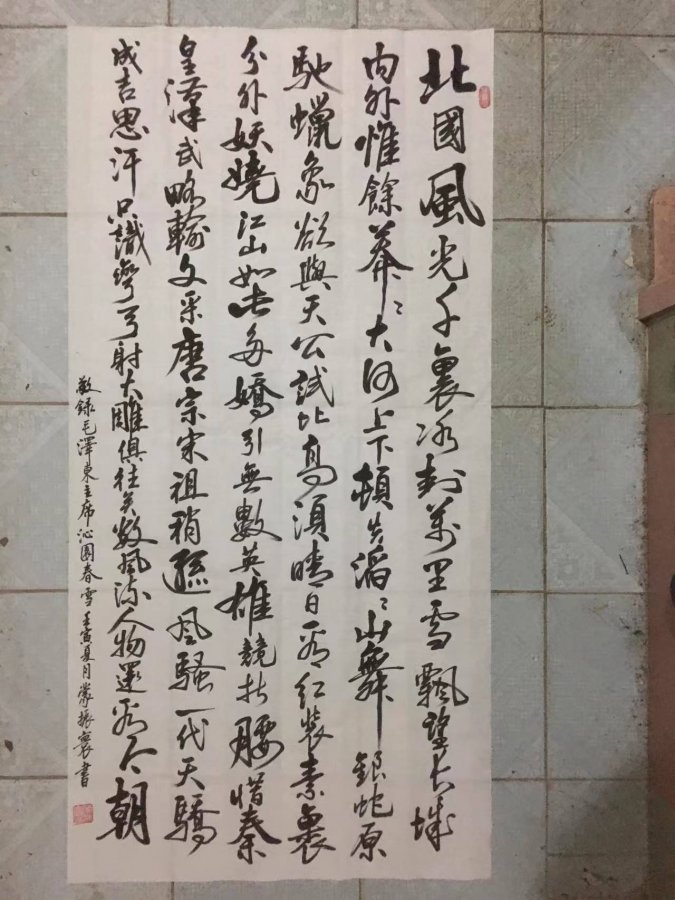 北國風光千裏冰封萬里雪飄望長城
内外惟餘莽〻大河上下頓失滔〻山舞銀蛇原
馳蠟象欲與天公試比高須晴日看紅裝素裹
分外妖嬈江山如此多嬌引無數英雄競折腰惜秦
皇漢武略輸文采唐宗宋祖稍遜風騷一代天驕
成吉思汗只識彎弓射大雕俱往矣數風流人物還看今朝
敬録毛澤東主席沁園春雪壬寅夏月蒙振書